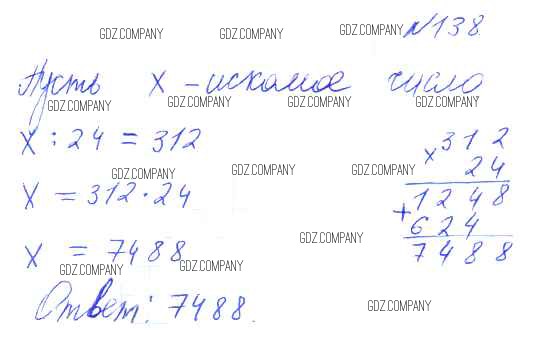 №138
Пусть х - искомое число
х : 24 = 312
х = 312 · 24
х = 7488
Ответ: 7488.
× 312
24
1248
+ 624
7488
GDZ.COMPANY
GDZ.COMPANY
GDZ.COMPANY
GDZ.COMPANY
GDZ.COMPANY
GDZ.COMPANY
GDZ.COMPANY
GDZ.COMPANY
GDZ.COMPANY
GDZ.COMPANY
GDZ.COMPANY
GDZ.COMPANY
GDZ.COMPANY
GDZ.COMPANY